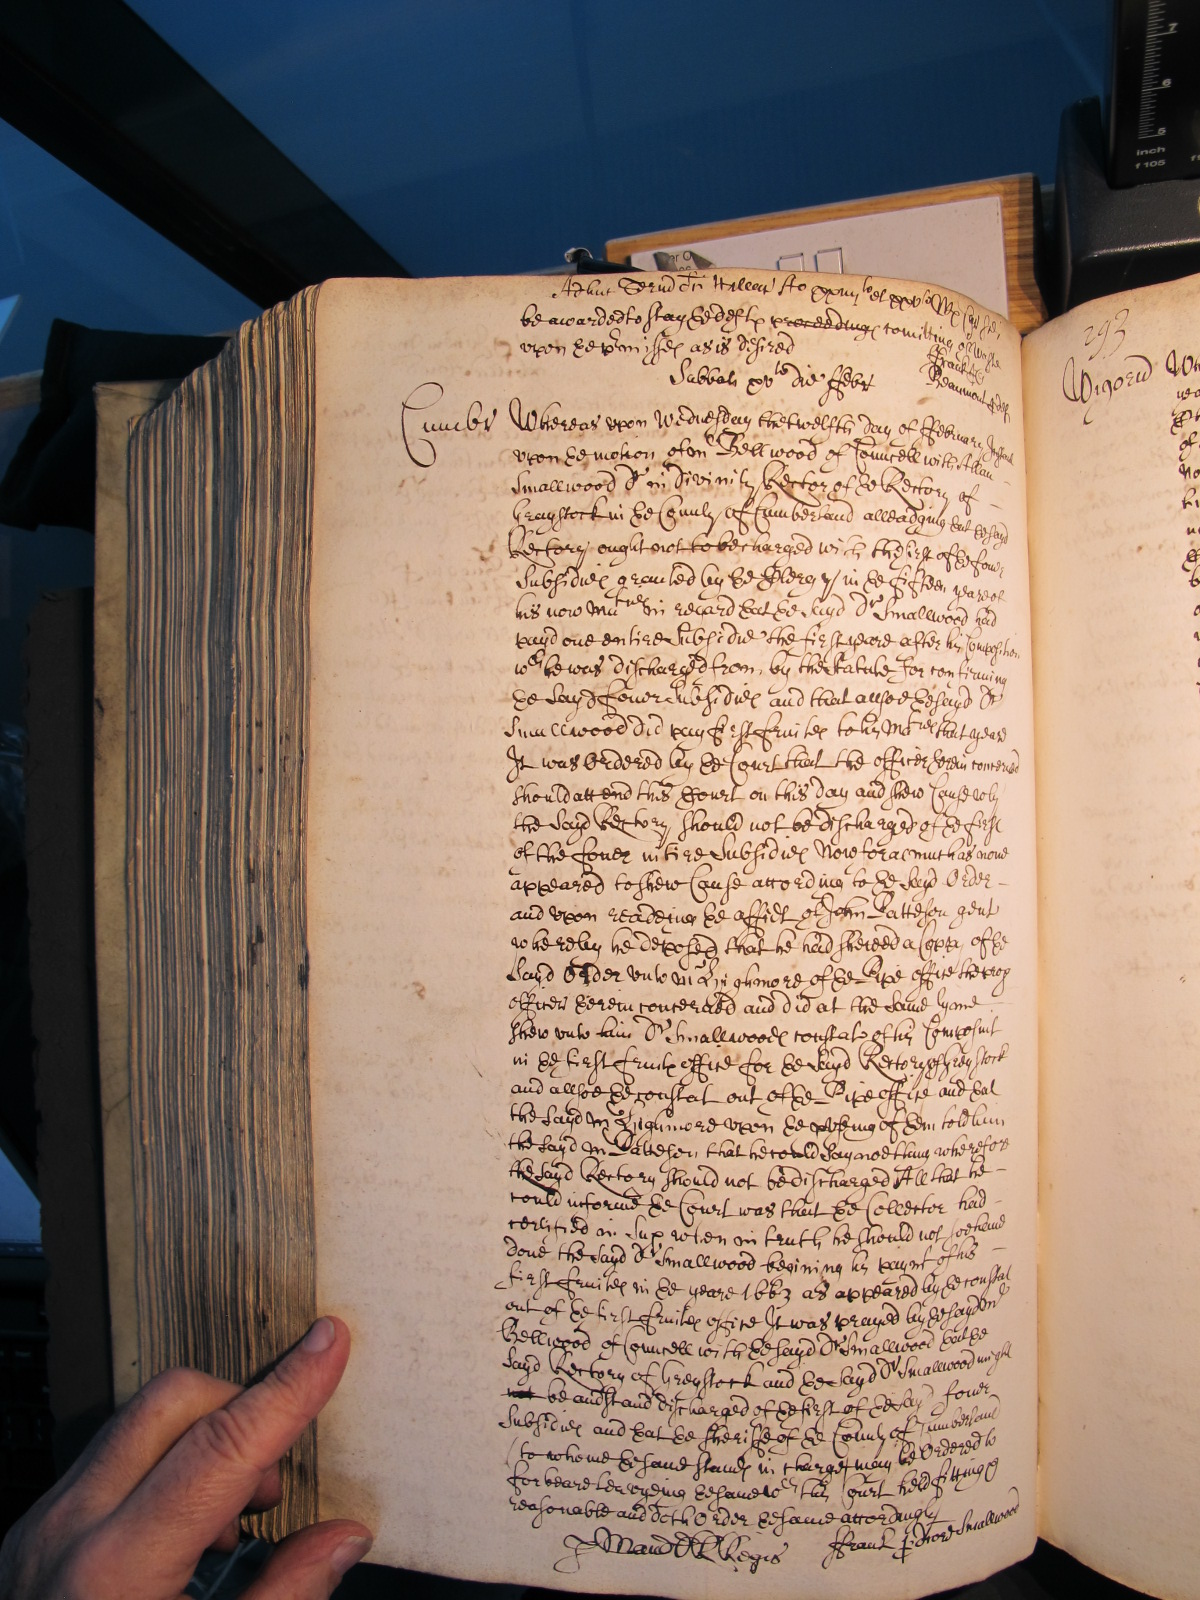 be awarded to stay ye deftes proceedinge comitting of Waste
upon ye premisses as is desired
Frank
Beaumont
Sabbati xvto die Febr
Cumbr Whereas upon Wednesday the twelfth day of ffebruary
upon ye motion of mr Bellwood of Councell with Allan
Smallwood Dr in Divinity Rector of ye Rectory of
Graystock in ye County of Cumberland alleadging yat ye said
Rectory ought not to be charged with the first of ye fower
Subsidies granted by ye Clergy in ye fifteen yeare of
his now Matie in regard yat ye sayd Dr Smallwood had
payd one entire Subsidie the first yeare after his Composition
wch he was discharged from, by the Statute for confirming
ye Sayd fower Subsidies and that allsoe ye sayd Dr
Smallwood did pay first fruites to his Matie that yeare
It was Ordered by ye Court that the officer herein concerned
should attend this Court on this day and shew Cause why
the Sayd Rectory should not be discharged of ye first
of the fower intire Subsidies Now for as much as none
appeared to shew Cause according to ye Sayd Order
and upon readeing ye affidt of John Patteson gent
whereby he deposed that he had shewed a Copy of ye
Sayd Order unto mr Highmore of ye Pipe office the prop
officer herein concerned and did at the same tyme
shew unto him Dr Smallwoods constat of his Composit
in ye first fruits office for ye Sayd Rectory of Greystock
and allsoe ye constat out of ye Pipe office and yat
the Sayd mr Highmore upon ye of them told him
the Sayd mr Patteson that he could Say noething wherefore
the Sayd Rectory should not be discharged All that he
could informe ye Court was that ye Collector had
certified in Sup when in truth he should not soe have
done the Sayd Dr Smallwood begining his paymt of his
first fruites in ye yeare 1663 as appeared by ye constat
out of ye first fruites office It was prayed by ye sayd mr
Bellwood of Councell with ye sayd Dr Smallwood yat ye
Sayd Rectory of Greystock and ye Sayd Dr Smallwood might
not be and stand discharged of ye first of ye Sayd fower
Subsidies and yat ye Sheriffe of ye County of Cumberland
(to whome ye same stands in charge) may be Ordered to
forbeare levyeing ye same wch this Court held fitting &
reasonable and doth Order ye same accordingly
Frank p Doctore Smallwood
293
Wigorn
inch
5
6
7
f 105